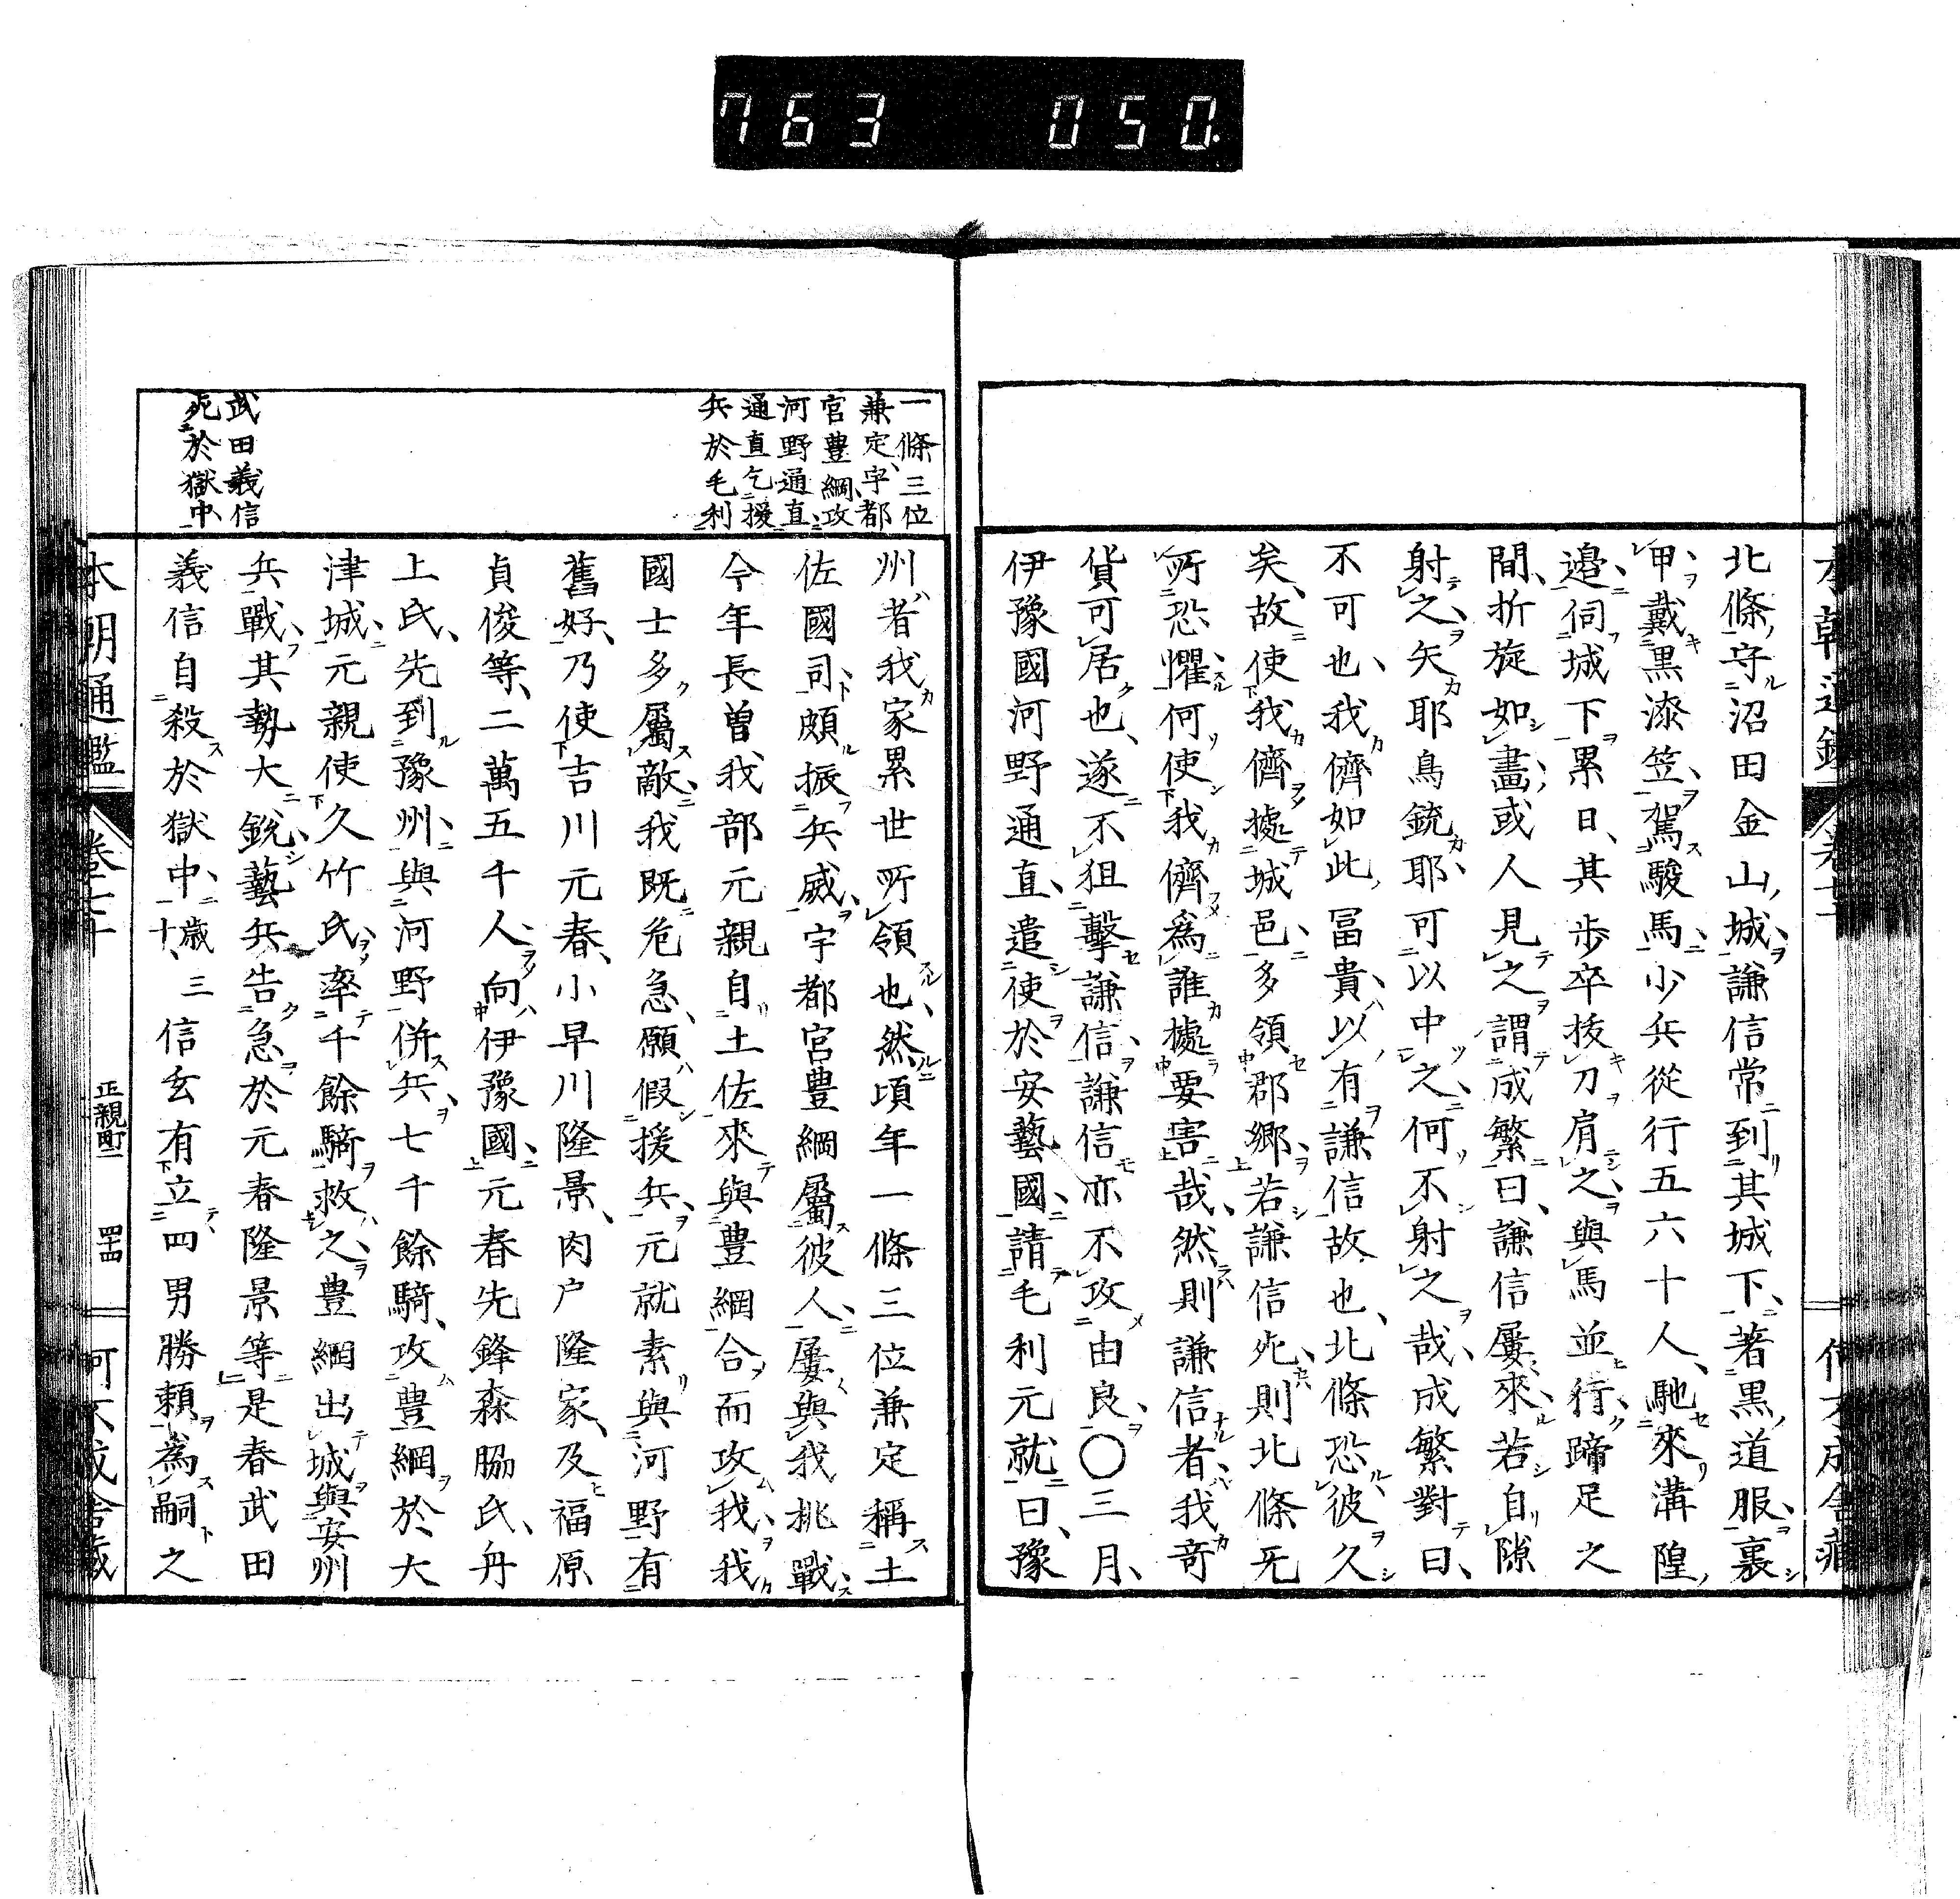 763 050
北條守沼田金山城謙信常到其城下著黒道服裏
甲戴黒漆笠駕駿馬少兵從行五六十人馳來溝隍
邉伺城下累日其歩卒抜刀肩之與馬並行蹄足之
間折旋如畫或人見之謂成繁曰謙信屢來若自隙
射之矢耶鳥銃耶可以中之何不射之哉成繁對曰
不可也我儕如此冨貴以有謙信故也北條恐彼久
矣故使我儕據城邑多領郡郷若謙信死則北條旡
所恐懼何使我儕爲誰據要害哉然則謙信者我竒
貨可居也遂不狙擊謙信謙信亦不攻由良〇三月
伊豫國河野通直遣使於安藝國請毛利元就曰豫
一條三位
兼定宇都
官豊綱攻
河野通直
通直乞援
兵於毛利
州者我家累世所領也然頃年一條三位兼定稱土
佐國司頗振兵威宇都宮豊綱屬彼人屢與我挑戰
今年長曽我部元親自土佐來與豊綱合而攻我我
國士多屬敵我既危急願假援兵元就素與河野有
舊好乃使吉川元春小早川隆景肉戸隆家及福原
貞俊等二萬五千人向伊豫國元春先鋒森脇氏舟
上氏先到豫州與河野併兵七千餘騎攻豊綱於大
津城元親使久竹氏率千餘騎救之豊綱出城與安州
兵戰其勢大銳藝兵告急於元春隆景等是春武田
武田義信
死於獄中
義信自殺於獄中歳三十信玄有立四男勝賴為嗣之
本朝通鑑 卷七十 正親町 四十四